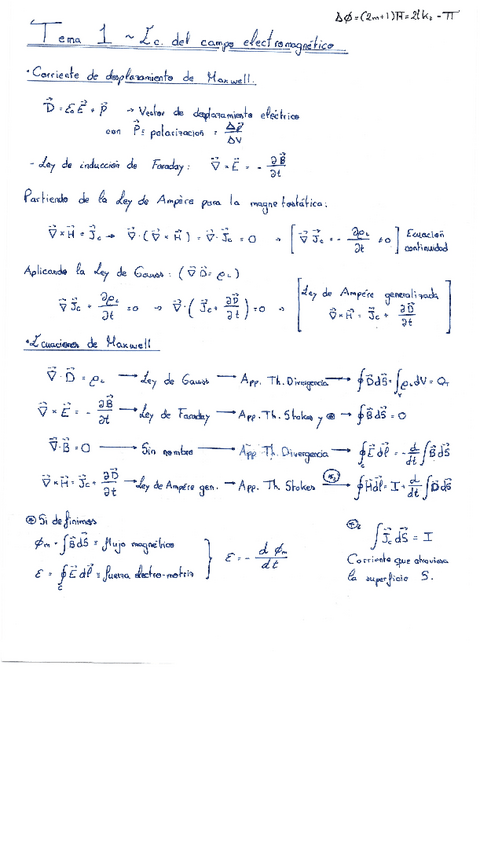 Δφ=(2m+1)π=2lk₂-π
Tema 1 ~ Ec. del campo electromagnético
· Corriente de desplazamiento de Maxwell.
D⃗ = ε₀E⃗ + P⃗ → Vector de desplazamiento eléctrico
con P⃗ ≡ polarización = Δp⃗/ΔV
- Ley de inducción de Faraday: ∇⃗×E⃗ = - ∂B⃗/∂t
Partiendo de la Ley de Ampère para la magnetostática:
∇⃗×H⃗ = J⃗c → ∇⃗·(∇⃗×H⃗) = ∇⃗·J⃗c = 0 → [∇⃗J⃗c = - ∂ρL/∂t ≠0] Ecuación continuidad
Aplicando la Ley de Gauss: (∇⃗D⃗=ρL)
∇⃗J⃗c + ∂ρL/∂t = 0 → ∇⃗·(J⃗c + ∂D⃗/∂t) = 0 → [Ley de Ampére generalizada ∇⃗×H⃗ = J⃗c + ∂D⃗/∂t]
· Ecuaciones de Maxwell
∇⃗·D⃗ = ρL → Ley de Gauss → App. Th. Divergencia → ∮D⃗dS⃗ = ∫ᵥρL dV = QT
∇⃗×E⃗ = - ∂B⃗/∂t → Ley de Faraday → App. Th. Stokes y ⊛ → ∮B⃗dS⃗ = 0
∇⃗·B⃗ = 0 → Sin nombre → App Th. Divergencia → ∮E⃗dl⃗ = - d/dt ∫B⃗dS⃗
∇⃗×H⃗ = J⃗c + ∂D⃗/∂t → Ley de Ampére gen. → App. Th. Stokes (*₂) → ∮H⃗dl⃗ = I + d/dt ∫D⃗dS⃗
⊛ Si definimos
φm = ∫B⃗dS⃗ ≡ flujo magnético
ε = ∮E⃗dl⃗ ≡ fuerza electro-motriz
ε = - d φm/dt
⊛₂
∫J⃗c dS⃗ = I
Corriente que atraviesa
la superficie S.